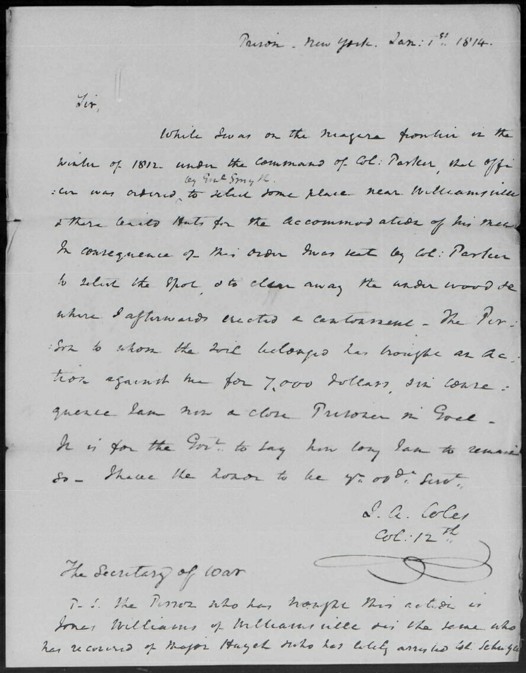 Prison - New York. Jan: 1st 1814.
Sir,
While I was on the niagara frontier in the
winter of 1812 under the command of Col: Parker, that offi
:cer was ordered, to select some place near Williamsville
by Genl Smyth.
& there build Huts for the accommodation of his men
In consequence of this order I was sent by Col: Parker
to select the spot, & to clear away the under wood &c
where I afterwards erected a cantonment - The Per-
:son to whom the soil belonged has brought an Ac-
tion against me for 7,000 dollars, & in conse:
quence I am now a close Prisoner in Goal -
It is for the Govt. to say how long I am to remain
so - I have the honor to be yr. obdt. Servt.
I. A. Coles
Col: 12th
The Secretary of War
P.S. The Person who has brought this action is
Jonas Williams of Williamsville & is the same who
has recovered of Major & who has lately arrested Col.